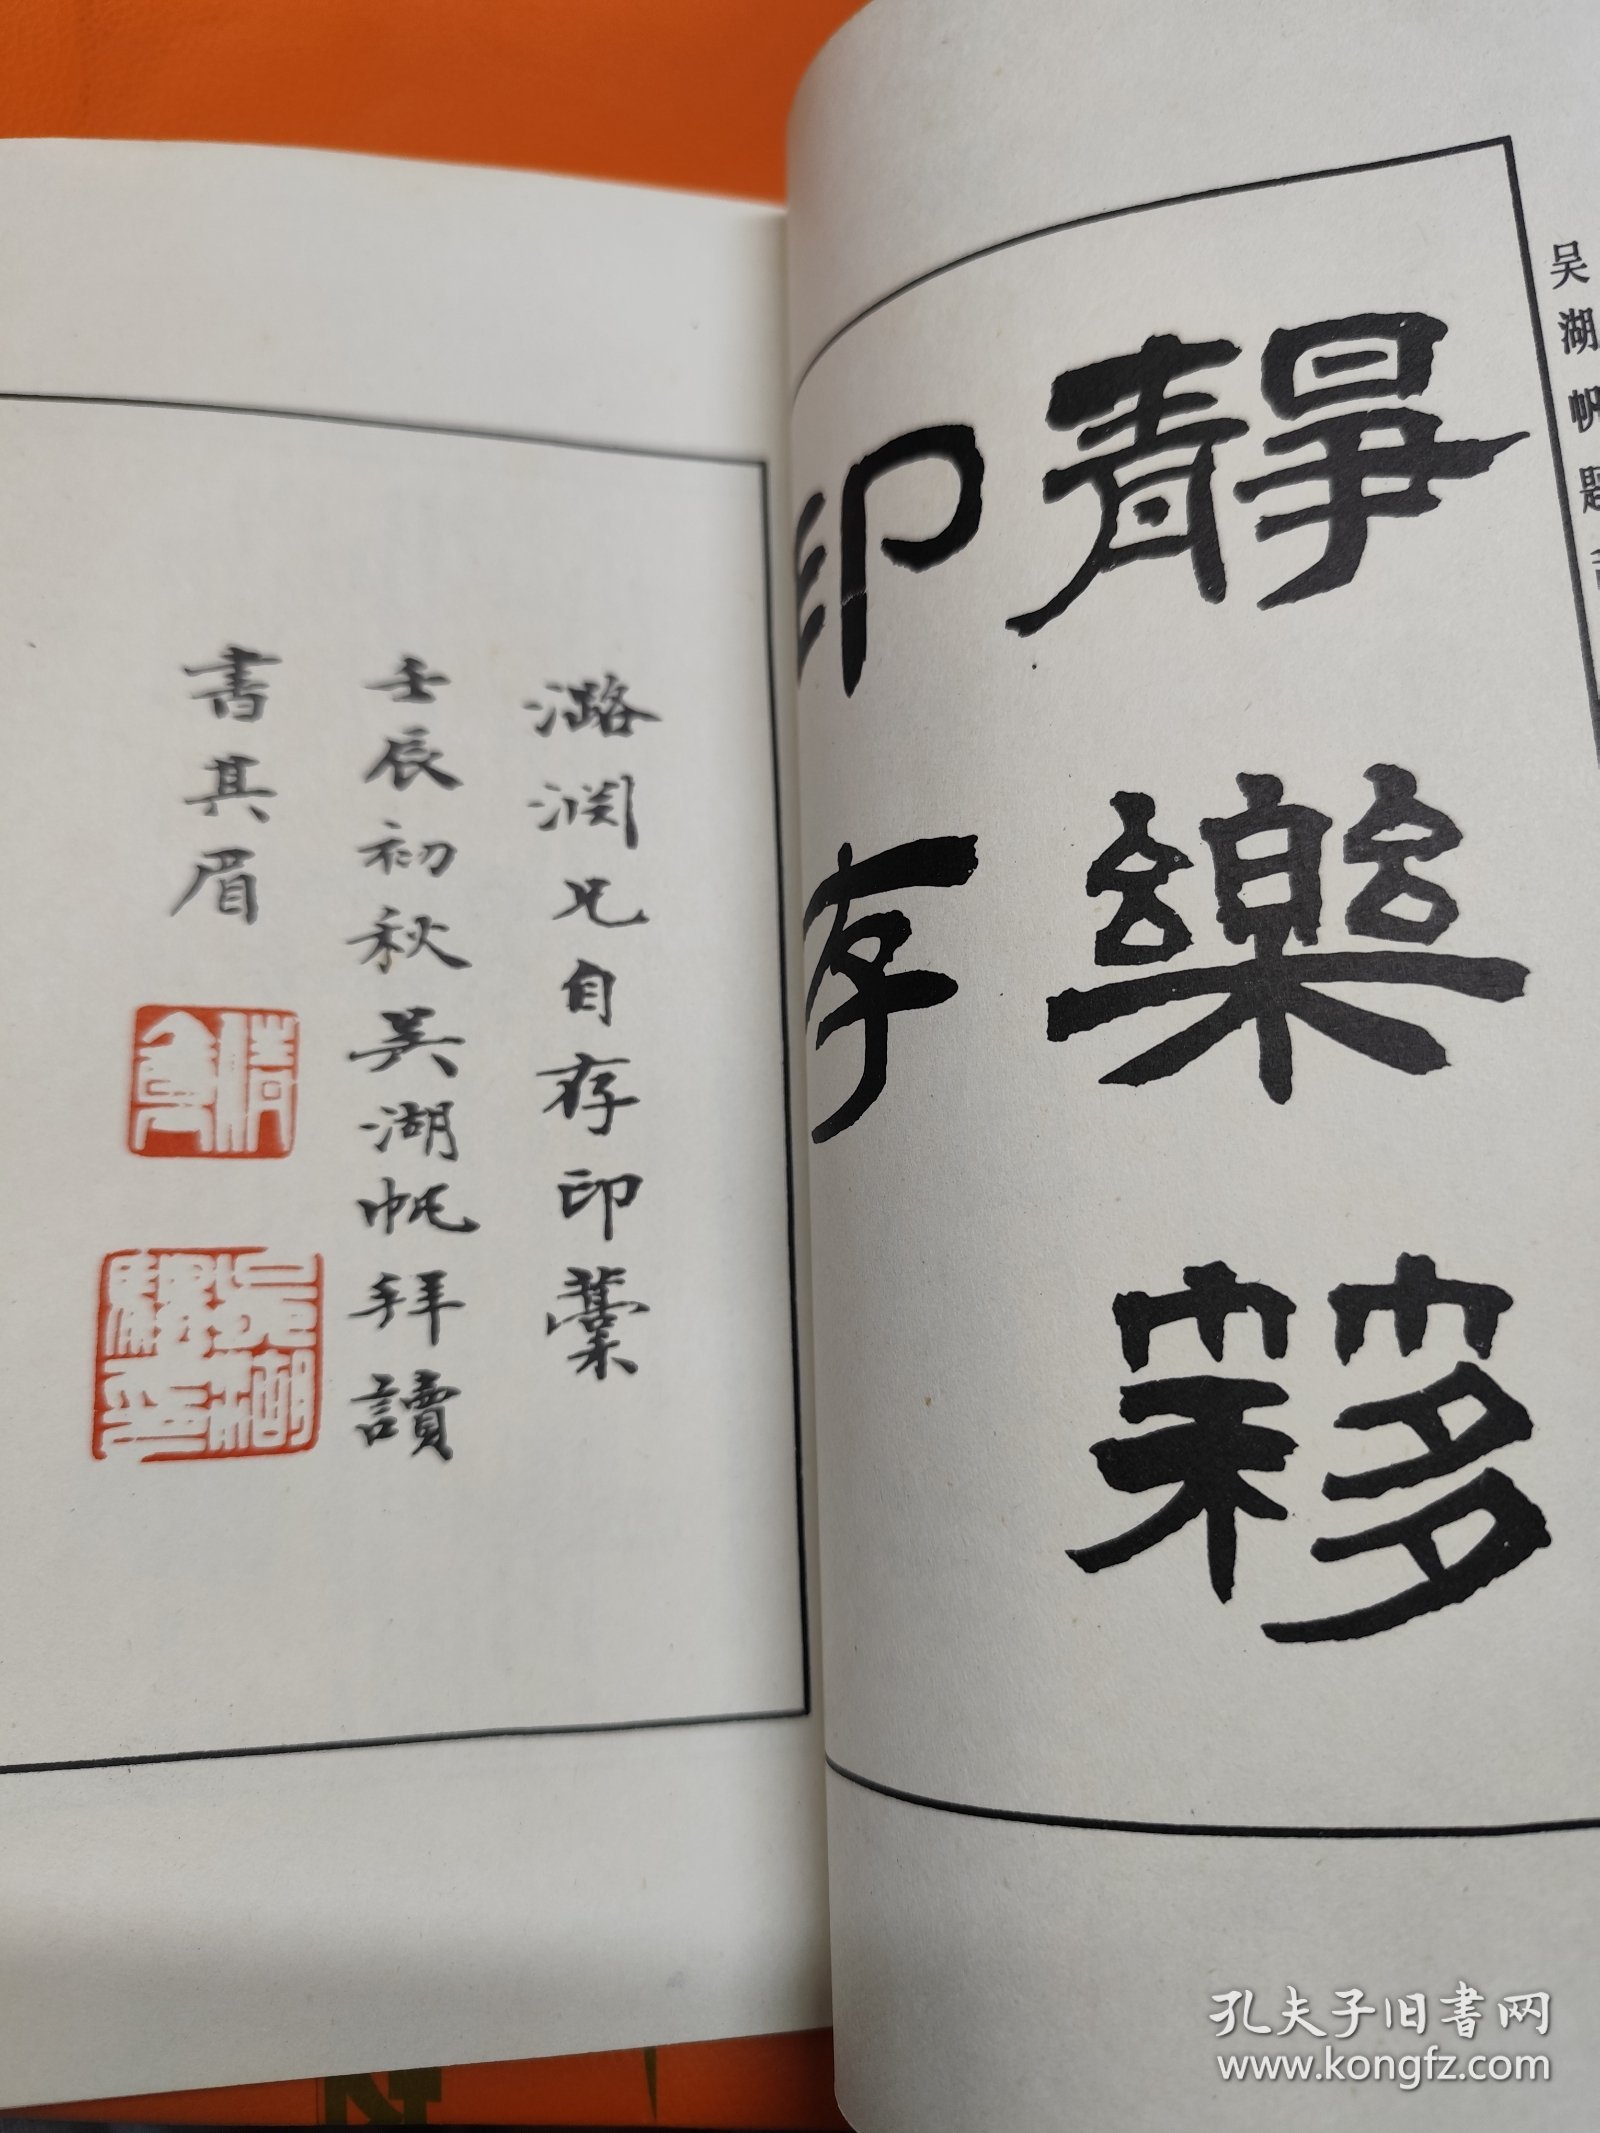 吴湖帆题
靜樂簃
印存
潞渊兄自存印藁
壬辰初秋吴湖帆拜讀
書其眉
倩盦
吳湖颿印
孔夫子旧書网
www.kongfz.com